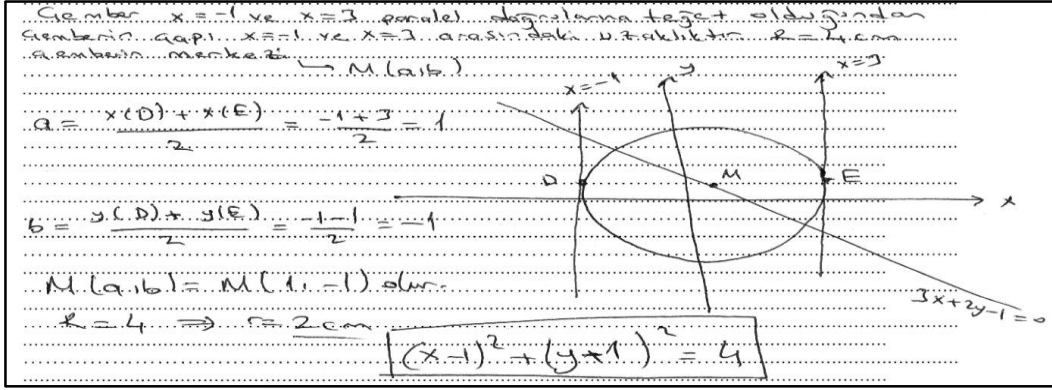 Çember x=-1 ve x=3 paralel doğrularına teğet olduğundan
Çemberin çapı x=-1 ve x=3 arasındaki uzaklıktır. R=4 cm
Çemberin merkezi
↳ M(a,b)
a = (x(D) + x(E))/2 = (-1+3)/2 = 1
b = (y(D) + y(E))/2 = (-1-1)/2 = -1
M(a,b) = M(1,-1) olur.
R=4 ⇒ r=2 cm
(x-1)² + (y+1)² = 4
x=-1
y
x=3
D
M
E
x
3x+2y-1=0